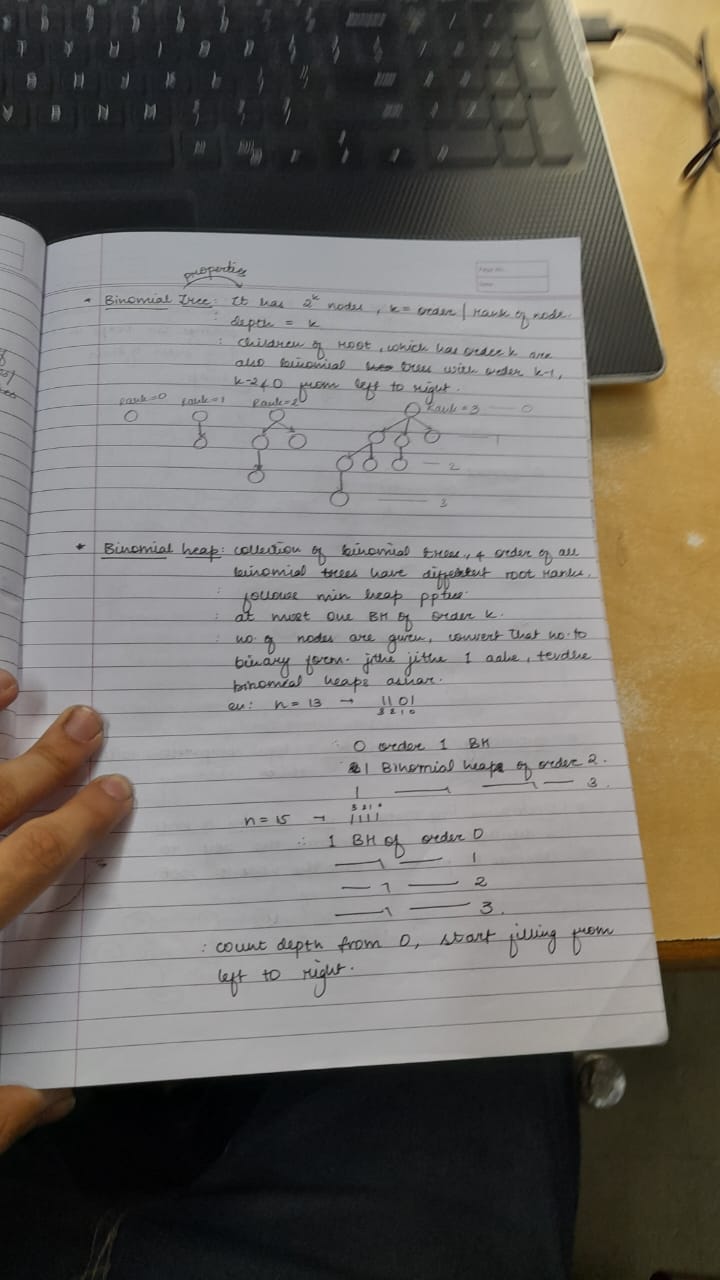 properties
* Binomial Tree : It has 2^k nodes, k = order | rank of node.
: depth = k
: children of root, which has order k are
also binomial trees with order k-1,
k-2 & 0 from left to right.
Rank=0 Rank=1 Rank=2 Rank=3 — 0
1
— 2
— 3
* Binomial heap : collection of binomial trees, & order of all
binomial trees have different root ranks.
: follows min heap ppties.
: at most one BH of order k.
: no. of nodes are given, convert that no. to
binary form. jithe jithe 1 aahe, tevdhe
binomial heaps astar.
ex: n = 13 → 1101
3 2 1 0
0 order 1 BH
1 Binomial heap of order 2.
1 — — 3.
3 2 1 0
n = 15 → 1111
∴ 1 BH of order 0
— 1 — 1
— 1 — 2
— 1 — 3.
: count depth from 0, start filling from
left to right.